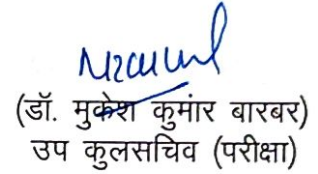 (डॉ. मुकेश कुमांर बारबर)
उप कुलसचिव (परीक्षा)